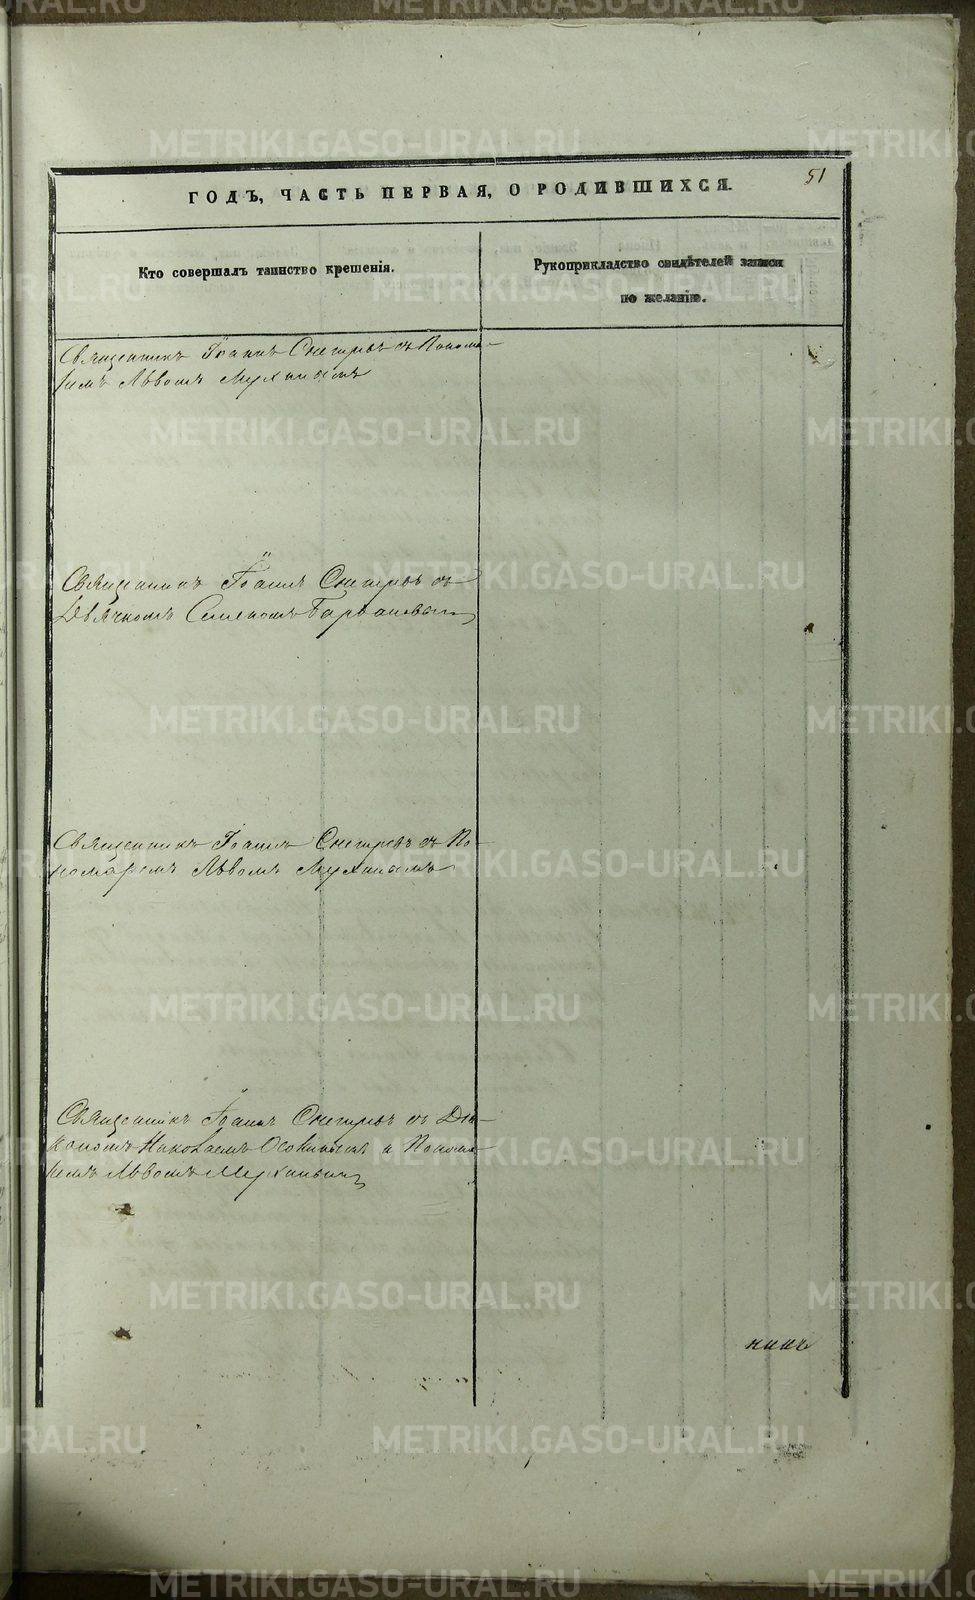 51
ГОДЪ, ЧАСТЬ ПЕРВАЯ, О РОДИВШИХСЯ.
Кто совершалъ таинство крещенія.
Рукоприкладство свидѣтелей записи
по желанію.
Священникъ Іоаннъ Снегиревъ съ Понома-
ремъ Львомъ Мухинымъ
Священникъ Іоаннъ Снегиревъ съ
Дьячкомъ Симеономъ
Священникъ Іоаннъ Снегиревъ съ По-
номаремъ Львомъ Мухинымъ
Священникъ Іоаннъ Снегиревъ съ Діа-
кономъ Николаемъ Осокинымъ и Понома-
ремъ Львомъ Мухинымъ
METRIKI.GASO-URAL.RU